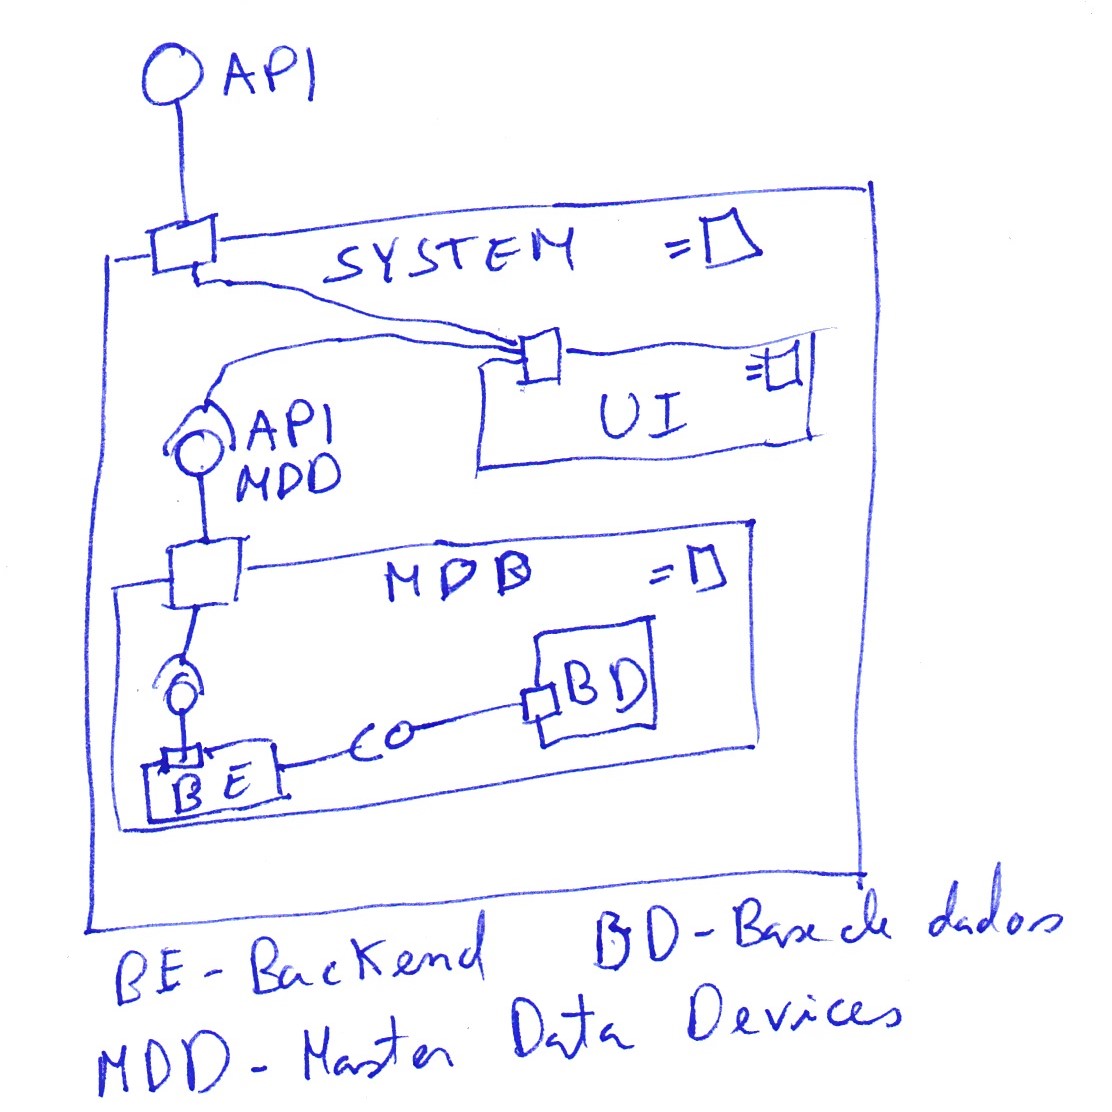 API
SYSTEM
UI
API
MDD
MDB
BD
BE
BE - Backend BD - Base de dados
MDD - Master Data Devices